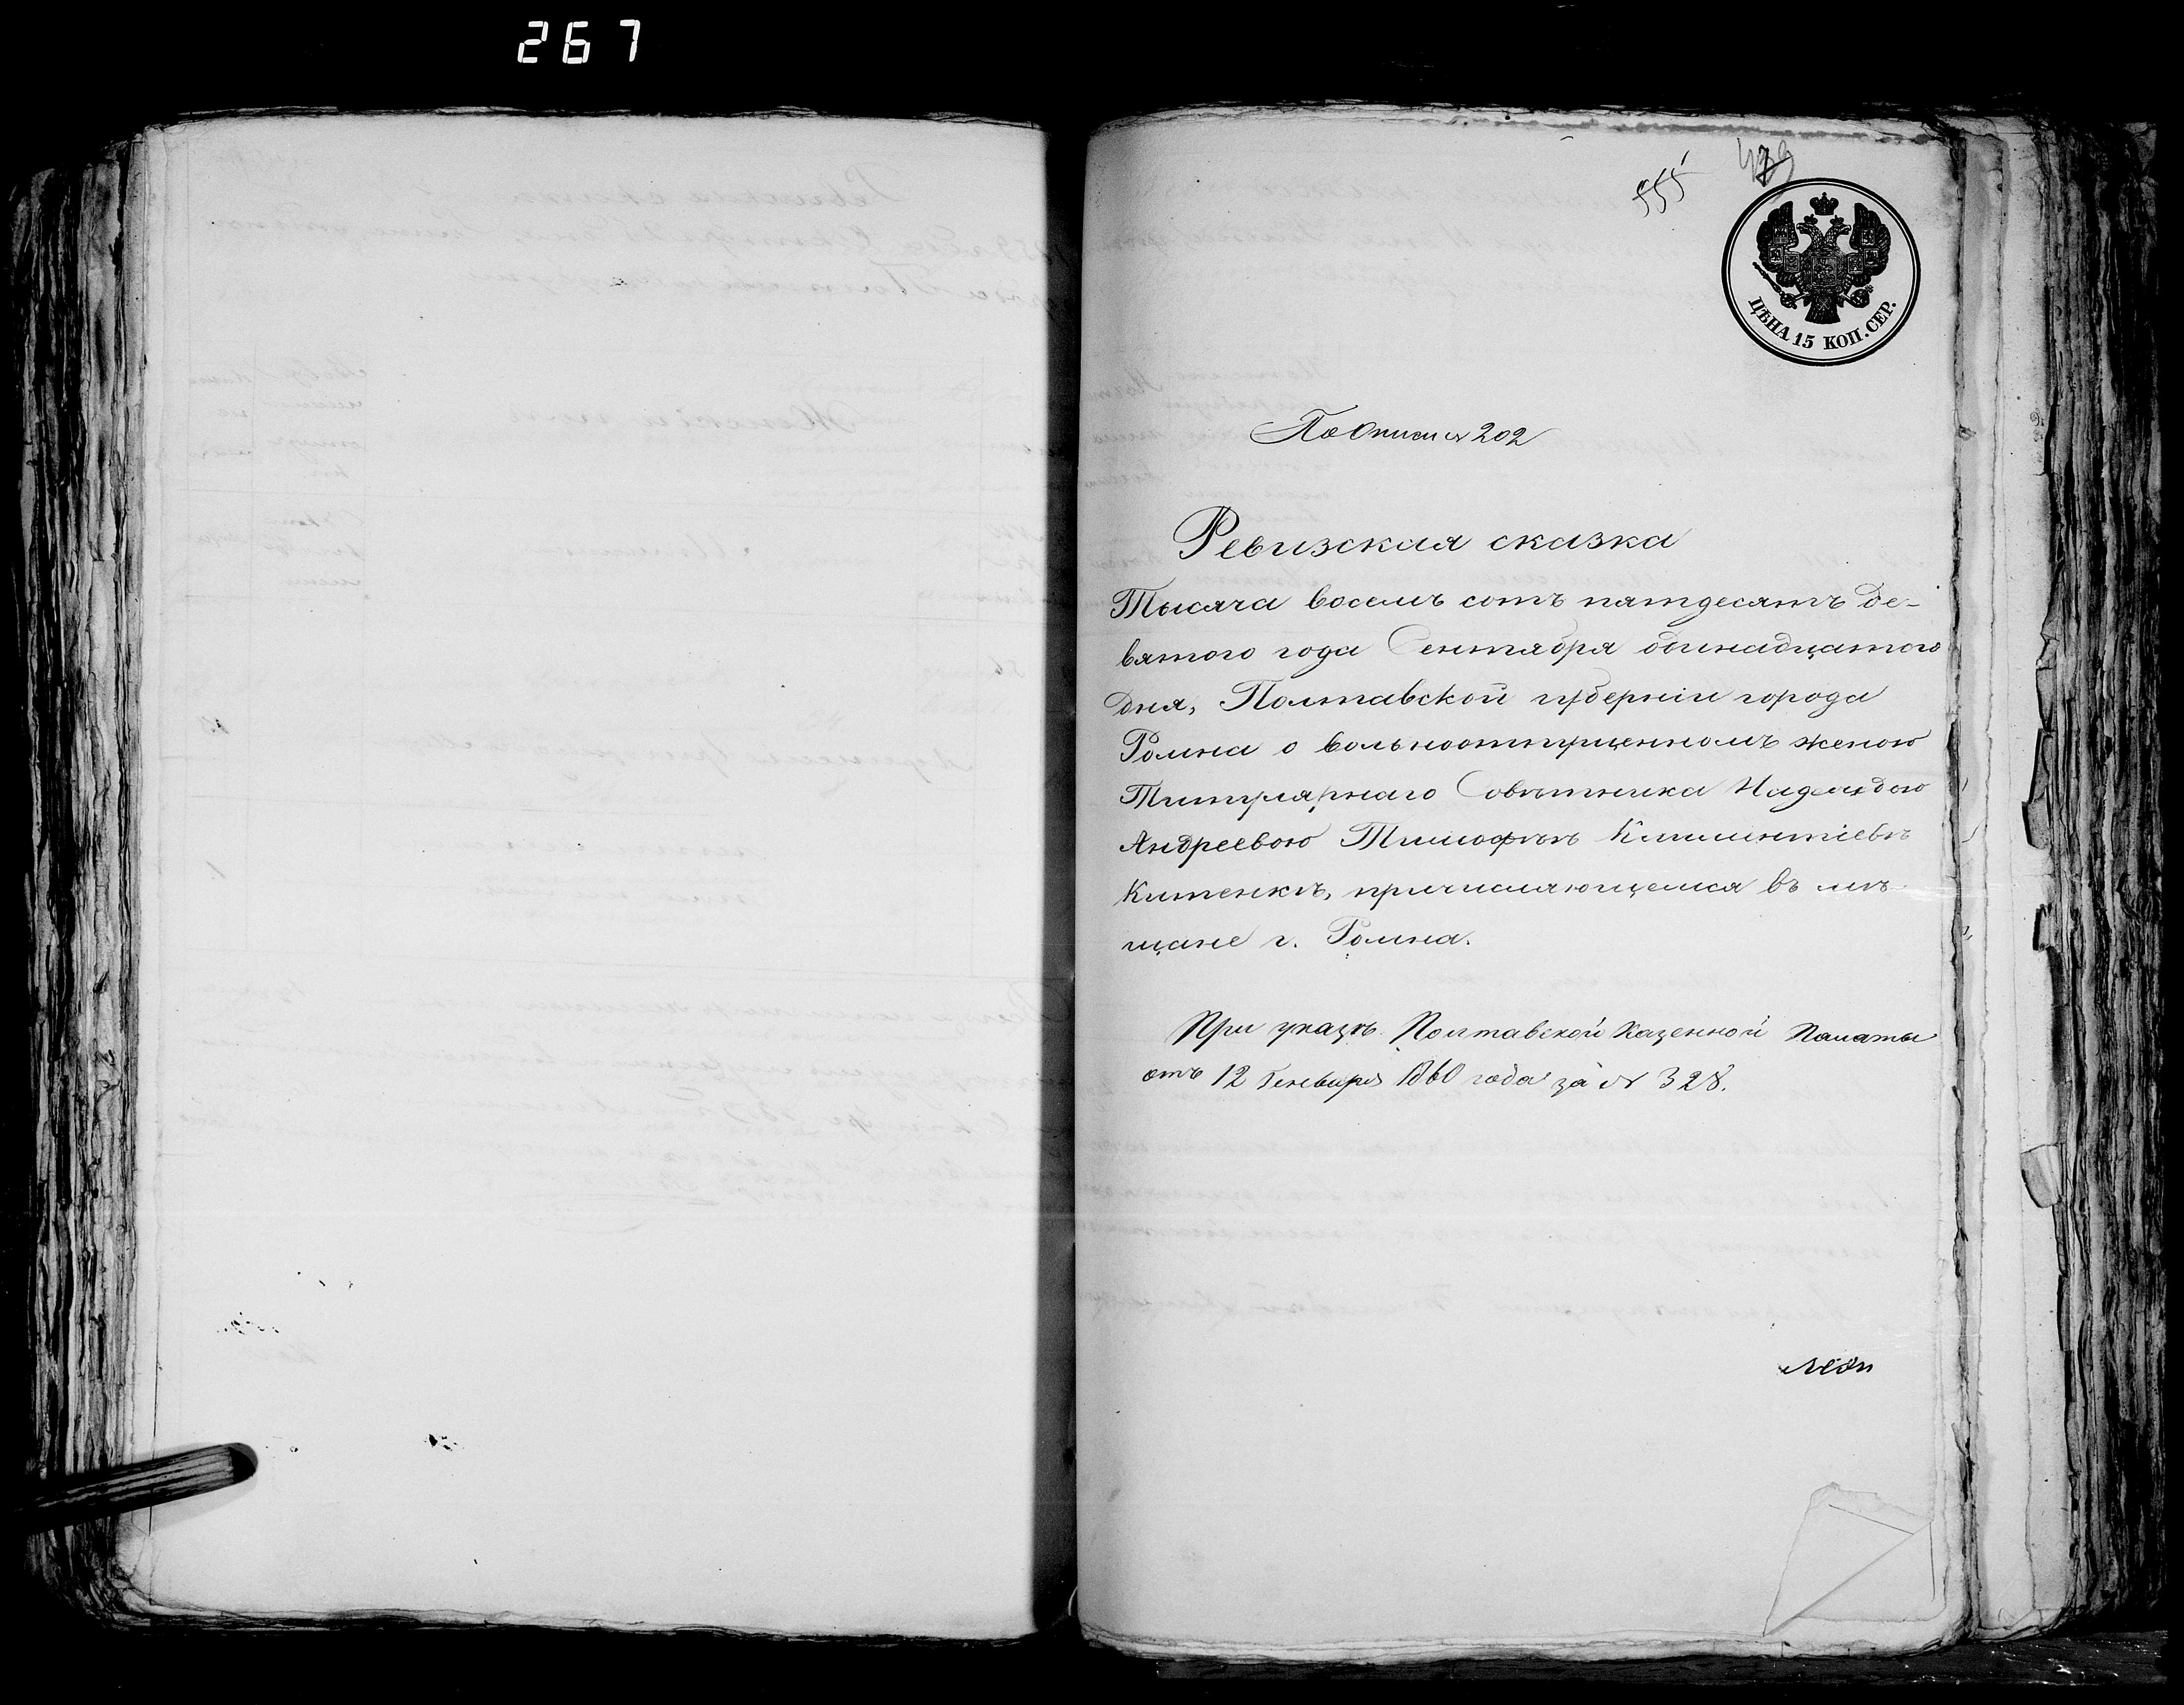 267
555
ЦѢНА 15 КОП. СЕР.
По Описи № 202
Ревизская сказка
Тысяча восемь сотъ пятдесятъ де-
вятого года Сентября одинадцатого
дня, Полтавской губерніи города
Ромна о вольноотпущенномъ женою
Титулярнаго Совѣтника Надеждою
Андреевою Тимофѣѣ Климентіевѣ
Китенкѣ, причисляющемся въ мѣ-
щане г. Ромна.
При указѣ Полтавской Казенной Палаты
отъ 12 Генваря 1860 года за № 328.